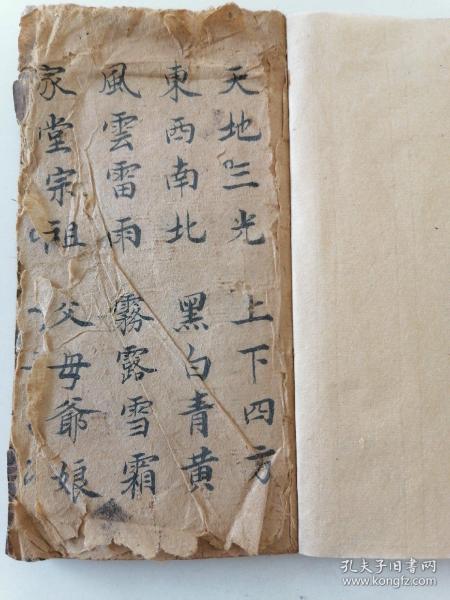 天地三光 上下四方
東西南北 黑白青黄
風雲雷雨 霧露雪霜
家堂宗祖 父母爺娘
孔夫子旧书网
www.kongfz.com